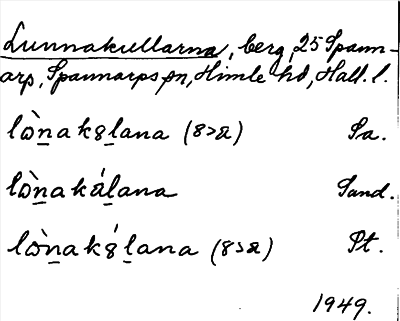 Lunnakullarna, berg, 25 Spann-
arp, Spannarps sn, Himle hd, Hall. l.
lὼn̲ak8l̲ana (8>a) Sa.
lὼn̲akál̲ana Sand.
lὼn̲ak8́l̲ana (8>a) Pt.
1949.